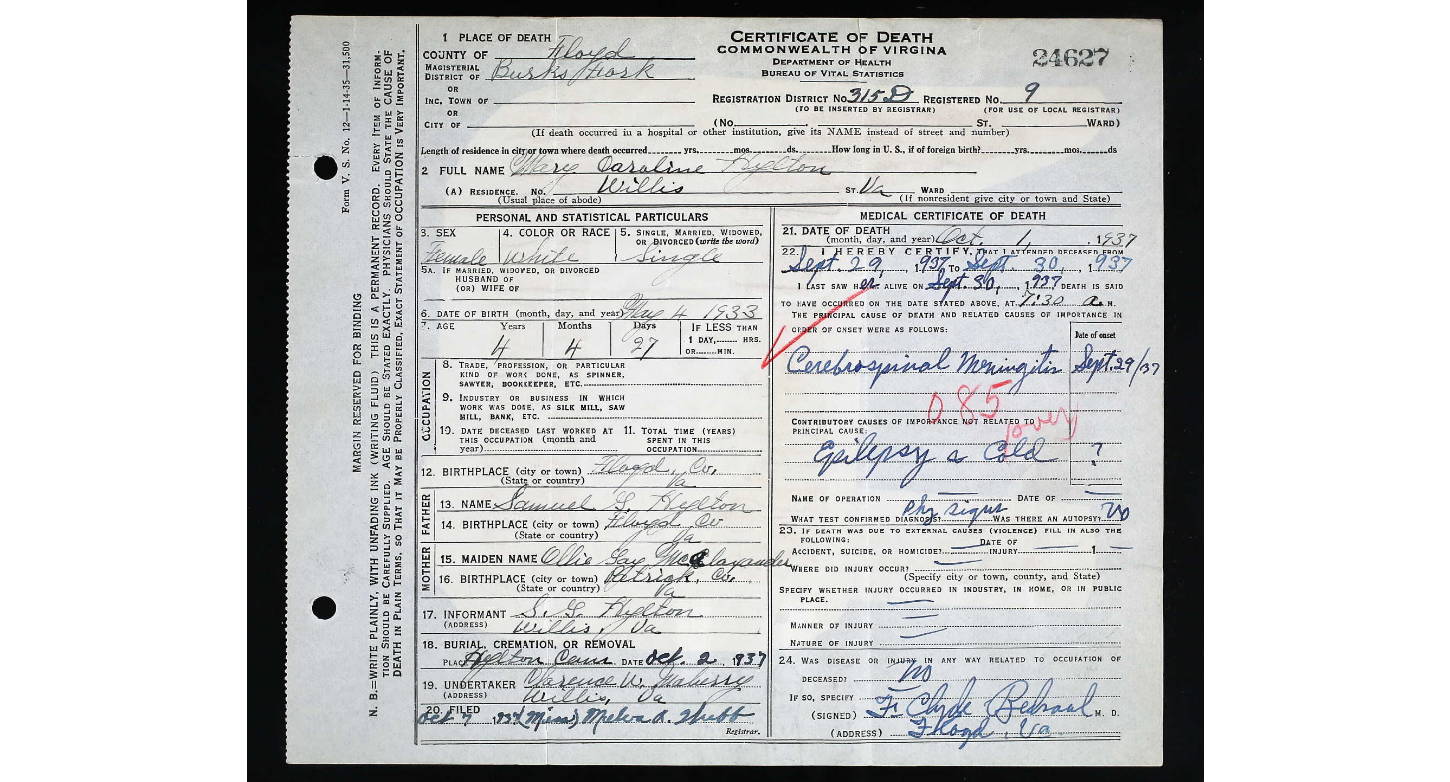 Form V. S. No. 12—1-14-35—31,500
MARGIN RESERVED FOR BINDING
N. B.—WRITE PLAINLY, WITH UNFADING INK (WRITING FLUID) THIS IS A PERMANENT RECORD. EVERY ITEM OF INFORMATION SHOULD BE CAREFULLY SUPPLIED. AGE SHOULD BE STATED EXACTLY. PHYSICIANS SHOULD STATE THE CAUSE OF DEATH IN PLAIN TERMS, SO THAT IT MAY BE PROPERLY CLASSIFIED. EXACT STATEMENT OF OCCUPATION IS VERY IMPORTANT.
CERTIFICATE OF DEATH
COMMONWEALTH OF VIRGINA
DEPARTMENT OF HEALTH
BUREAU OF VITAL STATISTICS
24627
1 PLACE OF DEATH
COUNTY OF Floyd
MAGISTERIAL DISTRICT OF Burks Fork
OR
INC. TOWN OF
OR
CITY OF
REGISTRATION DISTRICT No. 315D REGISTERED No. 9
(TO BE INSERTED BY REGISTRAR) (FOR USE OF LOCAL REGISTRAR)
(No. ST. WARD)
(If death occurred in a hospital or other institution, give its NAME instead of street and number)
Length of residence in city or town where death occurred yrs. mos. ds. How long in U. S., if of foreign birth? yrs. mos. ds
2 FULL NAME Mary Caroline Hylton
(A) RESIDENCE. No. Willis ST. Va WARD
(Usual place of abode) (If nonresident give city or town and State)
PERSONAL AND STATISTICAL PARTICULARS
3. SEX Female
4. COLOR OR RACE White
5. SINGLE, MARRIED, WIDOWED, OR DIVORCED (write the word) Single
5A. IF MARRIED, WIDOWED, OR DIVORCED
HUSBAND OF
(OR) WIFE OF
6. DATE OF BIRTH (month, day, and year) May 4 1933
7. AGE Years 4 Months 4 Days 27 IF LESS THAN 1 DAY, HRS. OR MIN.
OCCUPATION
8. TRADE, PROFESSION, OR PARTICULAR KIND OF WORK DONE, AS SPINNER, SAWYER, BOOKKEEPER, ETC.
9. INDUSTRY OR BUSINESS IN WHICH WORK WAS DONE, AS SILK MILL, SAW MILL, BANK, ETC.
10. DATE DECEASED LAST WORKED AT THIS OCCUPATION (month and year)
11. TOTAL TIME (YEARS) SPENT IN THIS OCCUPATION
12. BIRTHPLACE (city or town) Floyd, Co,
(State or country) Va
FATHER
13. NAME Samuel G. Hylton
14. BIRTHPLACE (city or town) Floyd Co
(State or country) Va
MOTHER
15. MAIDEN NAME Ollie Gay McAlaxander
16. BIRTHPLACE (city or town) Patrick, Co,
(State or country) Va
17. INFORMANT S. G. Hylton
(ADDRESS) Willis, Va
18. BURIAL, CREMATION, OR REMOVAL
PLACE Hylton Cem DATE Oct. 2, 1937
19. UNDERTAKER Clarence W. Maberry
(ADDRESS) Willis, Va
20. FILED Oct 7, 1937 (Miss) Melva A. Webb
Registrar.
MEDICAL CERTIFICATE OF DEATH
21. DATE OF DEATH
(month, day, and year) Oct. 1, 1937
22. I HEREBY CERTIFY, THAT I ATTENDED DECEASED FROM
Sept. 29, 1937 TO Sept. 30, 1937
I LAST SAW HER ALIVE ON Sept. 30, 1937 DEATH IS SAID
TO HAVE OCCURRED ON THE DATE STATED ABOVE, AT 7:30 a. M.
THE PRINCIPAL CAUSE OF DEATH AND RELATED CAUSES OF IMPORTANCE IN
ORDER OF ONSET WERE AS FOLLOWS:
Date of onset
Cerebrospinal Meningitis Sept. 29/37
085
(over)
CONTRIBUTORY CAUSES OF IMPORTANCE NOT RELATED TO
PRINCIPAL CAUSE:
Epilepsy & Cold ?
NAME OF OPERATION DATE OF
WHAT TEST CONFIRMED DIAGNOSIS? Phy signs WAS THERE AN AUTOPSY? No
23. IF DEATH WAS DUE TO EXTERNAL CAUSES (VIOLENCE) FILL IN ALSO THE
FOLLOWING:
ACCIDENT, SUICIDE, OR HOMICIDE? DATE OF INJURY 1
WHERE DID INJURY OCCUR?
(Specify city or town, county, and State)
SPECIFY WHETHER INJURY OCCURRED IN INDUSTRY, IN HOME, OR IN PUBLIC
PLACE.
MANNER OF INJURY
NATURE OF INJURY
24. WAS DISEASE OR INJURY IN ANY WAY RELATED TO OCCUPATION OF
DECEASED? No
IF SO, SPECIFY
(SIGNED) F. Clyde Bedsaul M. D.
(ADDRESS) Floyd, Va